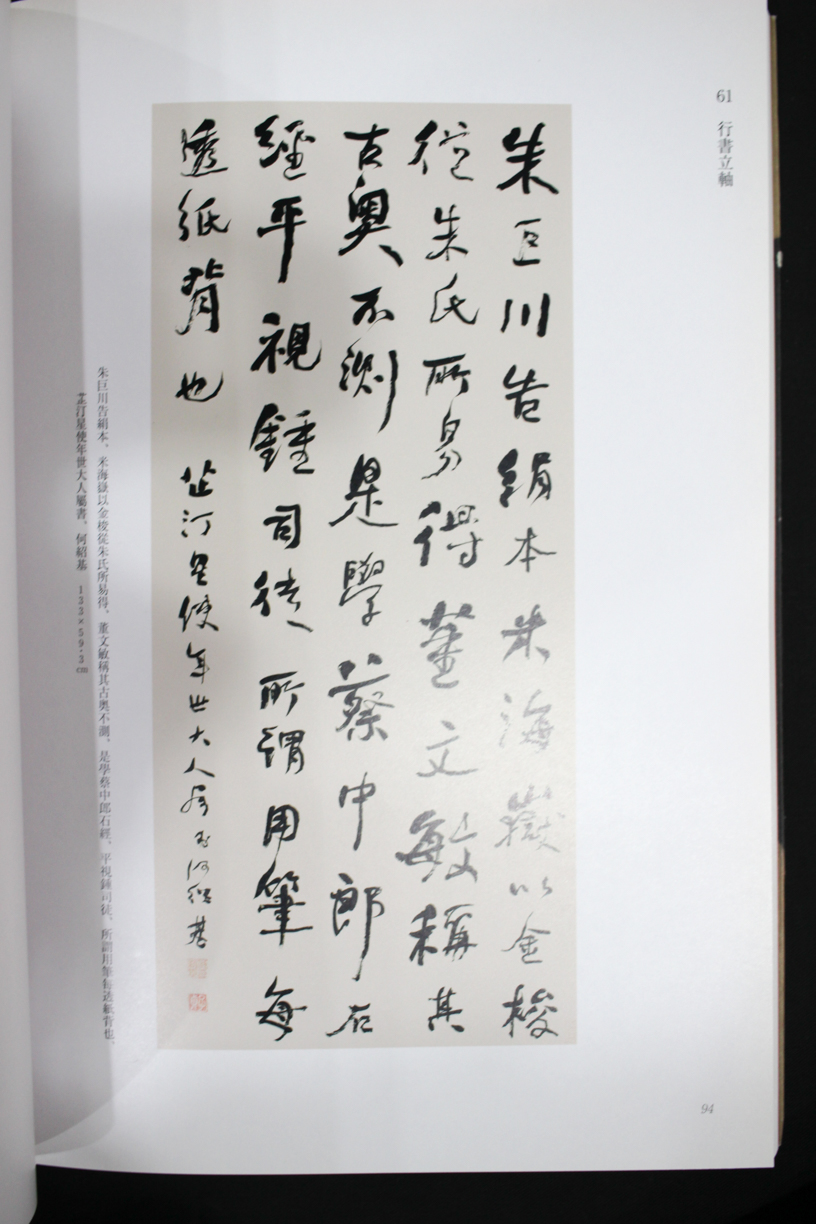 61 行書立軸
朱巨川告絹本米海嶽以金梭
從朱氏所易得董文敏稱其
古奧不測是學蔡中郎石
經平視鍾司徒所謂用筆每
透紙背也 芷汀星使年世大人屬書何紹基
朱巨川告絹本、米海嶽以金梭從朱氏所易得、董文敏稱其古奧不測、是學蔡中郎石經、平視鍾司徒、所謂用筆每透紙背也、
芷汀星使年世大人屬書、何紹基 133×59·3cm
94